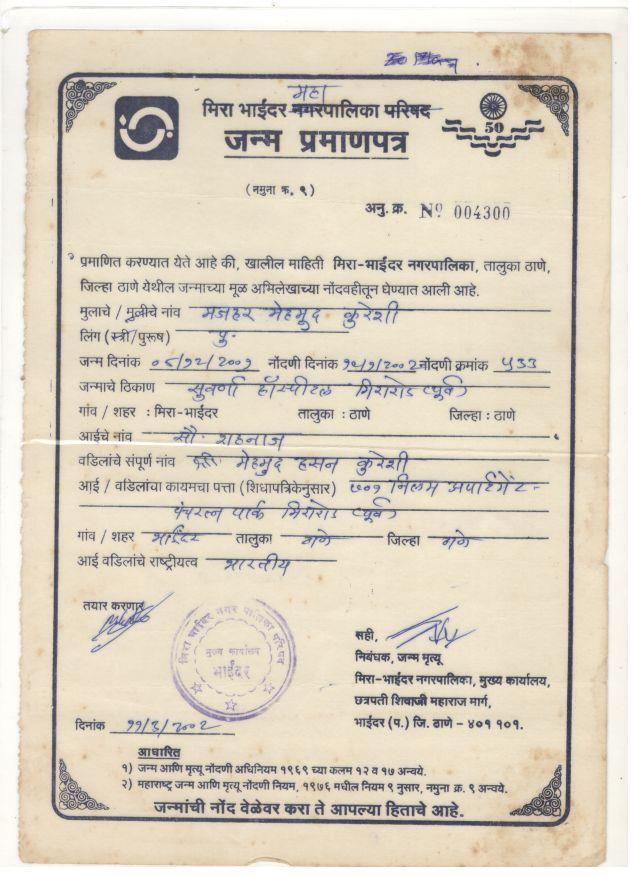 महा
मिरा भाईंदर नगरपालिका परिषद
जन्म प्रमाणपत्र
50
(नमुना क्र. ९)
अनु. क्र. Nº 004300
प्रमाणित करण्यात येते आहे की, खालील माहिती मिरा-भाईंदर नगरपालिका, तालुका ठाणे,
जिल्हा ठाणे येथील जन्माच्या मूळ अभिलेखाच्या नोंदवहीतून घेण्यात आली आहे.
मुलाचे / मुलीचे नांव मजहर मेहमुद कुरेशी
लिंग (स्त्री/पुरूष) पु.
जन्म दिनांक ०५/१२/२००१ नोंदणी दिनांक १५/१/२००२ नोंदणी क्रमांक ५३३
जन्माचे ठिकाण सुवर्णा हॉस्पीटल मिरारोड (पूर्व)
गांव / शहर : मिरा-भाईंदर तालुका : ठाणे जिल्हा : ठाणे
आईचे नांव सौ. शहनाज
वडिलांचे संपूर्ण नांव श्री. मेहमुद हसन कुरेशी
आई / वडिलांचा कायमचा पत्ता (शिधापत्रिकेनुसार) ७०१ निलम अपार्टमेंट -
पंचरत्न पार्क मिरारोड (पूर्व)
गांव / शहर भाईंदर तालुका ठाणे जिल्हा ठाणे
आई वडिलांचे राष्ट्रीयत्व भारतीय
तयार करणार
मिरा भाईंदर नगर पालिका परिषद
मुख्य कार्यालय
भाईंदर
सही,
निबंधक, जन्म मृत्यू
मिरा-भाईंदर नगरपालिका, मुख्य कार्यालय,
छत्रपती शिवाजी महाराज मार्ग,
भाईंदर (प.) जि. ठाणे - ४०१ १०१.
दिनांक ११/३/२००२
आधारित
१) जन्म आणि मृत्यू नोंदणी अधिनियम १९६९ च्या कलम १२ व १७ अन्वये.
२) महाराष्ट्र जन्म आणि मृत्यू नोंदणी नियम, १९७६ मधील नियम ९ नुसार, नमुना क्र. ९ अन्वये.
जन्मांची नोंद वेळेवर करा ते आपल्या हिताचे आहे.